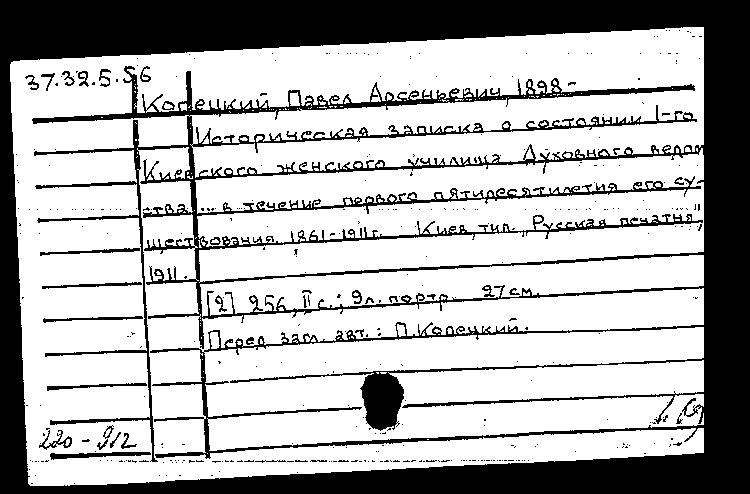 37.32.5.56
Копецкий, Павел Арсеньевич, 1898-
Историческая записка о состоянии 1-го
Киевского женского училища Духовного ведом
ства ... в течение первого пятидесятилетия его су-
ществования. 1861-1911г. Киев, тип. "Русская печатня",
1911.
[2], 256, II с.; 9л. портр. 27см.
Перед загл. авт.: П.Копецкий.
220-912